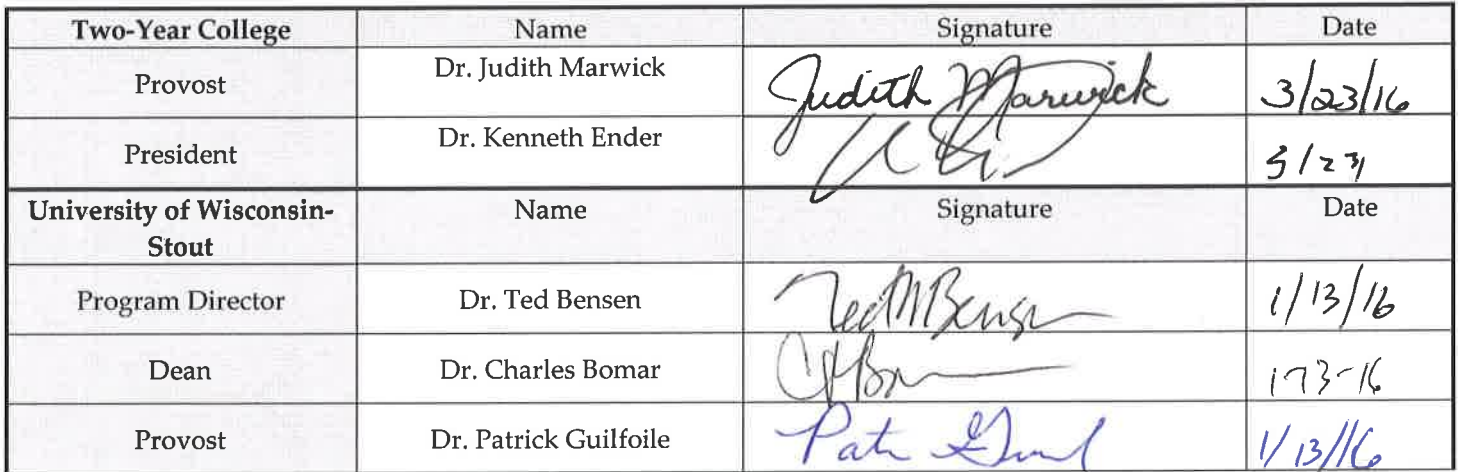 Two-Year College Name Signature Date
Provost Dr. Judith Marwick Judith Marwick 3/23/16
President Dr. Kenneth Ender
University of Wisconsin-
Stout Name Signature Date
Program Director Dr. Ted Bensen Ted M Bensen 1/13/16
Dean Dr. Charles Bomar
Provost Dr. Patrick Guilfoile 1/13/16